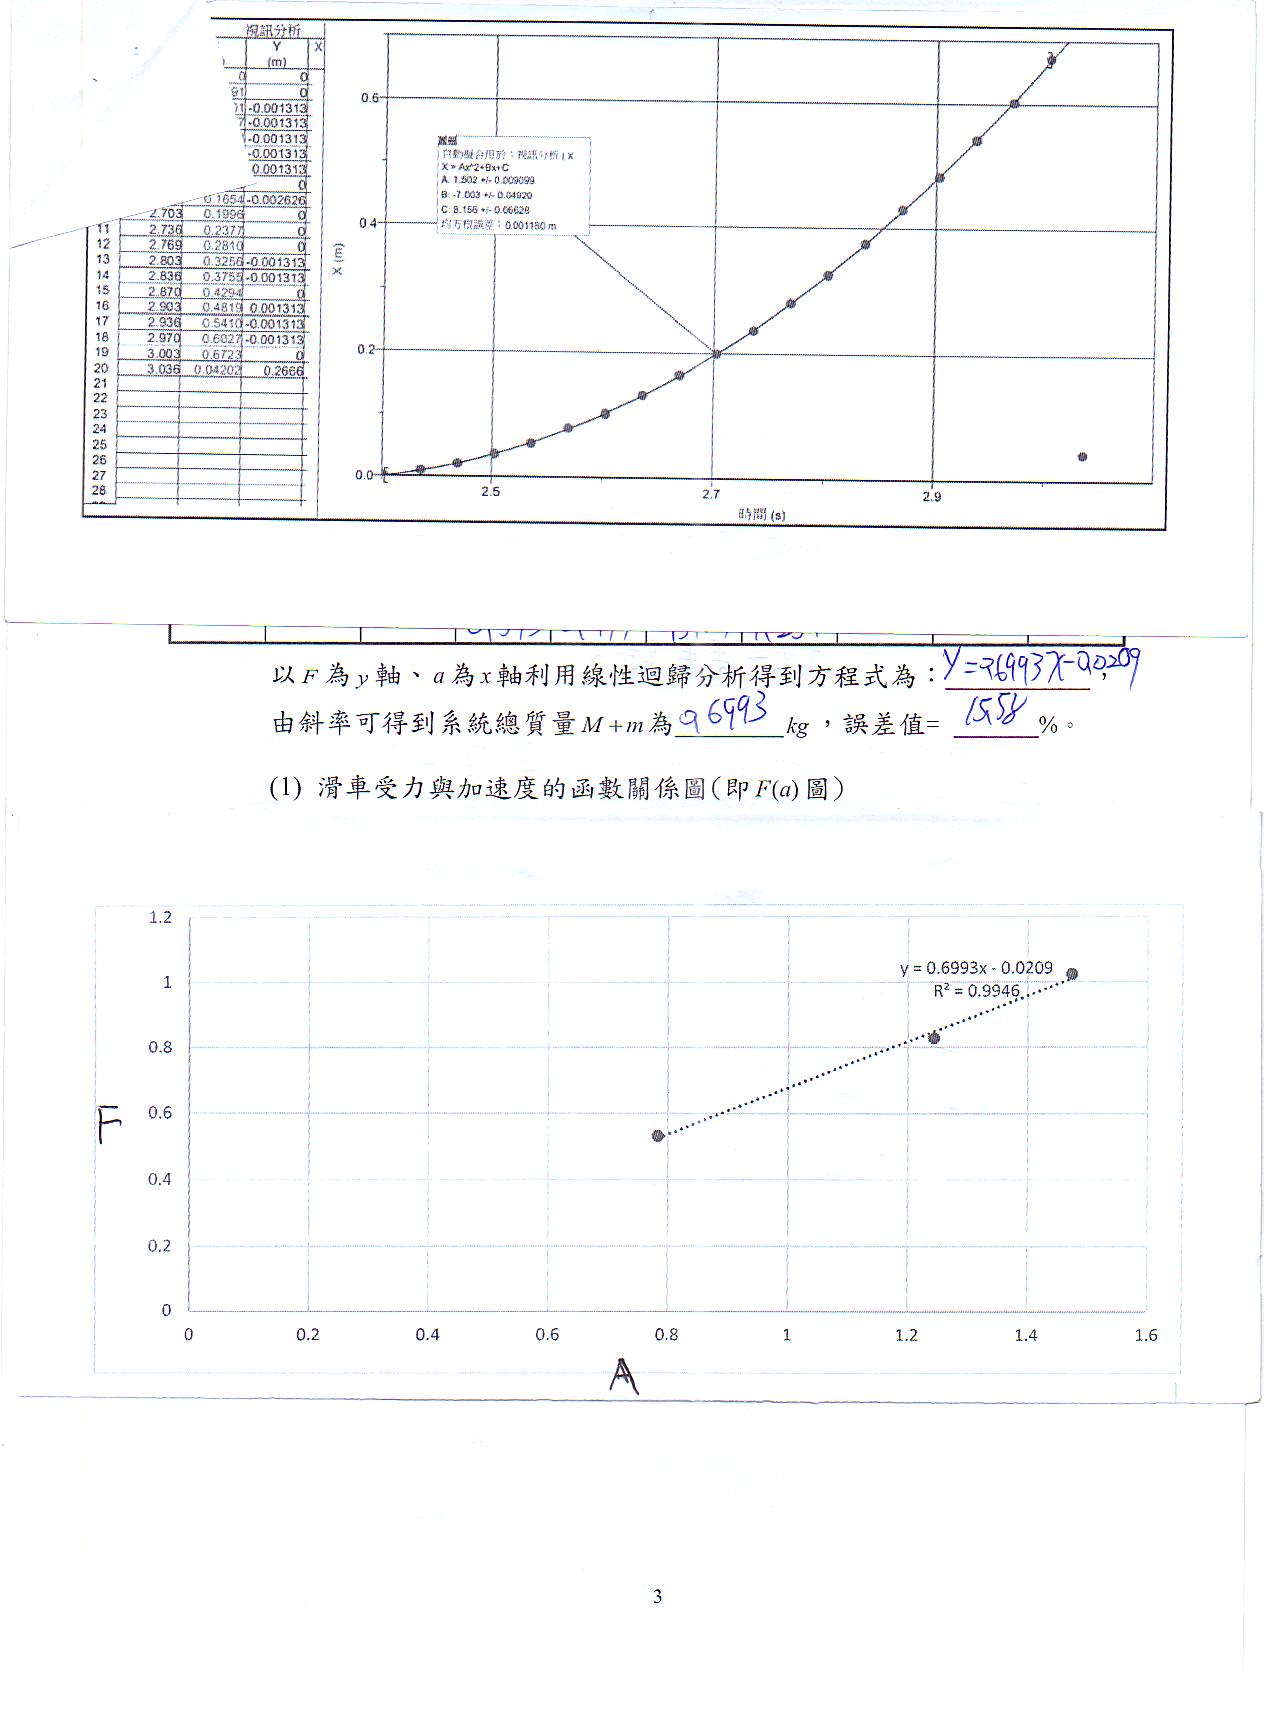 視訊分析
Y X
(m)
0 0
91 0
01 -0.001313
7 -0.001313
-0.001313
-0.001313
0.001313
0
0.1654 -0.002626
2.703 0.1996 0
11 2.736 0.2377 0
12 2.769 0.2810 0
13 2.803 0.3256 -0.001313
14 2.836 0.3755 -0.001313
15 2.870 0.4294 0
16 2.903 0.4819 0.001313
17 2.936 0.5410 -0.001313
18 2.970 0.6027 -0.001313
19 3.003 0.6723 0
20 3.036 0.04202 0.2666
21
22
23
24
25
26
27
28
0.6
0.4
0.2
0.0
X (m)
自動擬合用於：視訊分析 | X
X = Ax^2+Bx+C
A: 1.502 +/- 0.009099
B: -7.003 +/- 0.04920
C: 8.156 +/- 0.06628
均方根誤差：0.001180 m
2.5 2.7 2.9
時間 (s)
以 F 為 y 軸、a 為 x 軸利用線性迴歸分析得到方程式為：Y=0.6993X-0.0209，
由斜率可得到系統總質量 M+m 為 0.6993 kg，誤差值= 15.58 %。
(1) 滑車受力與加速度的函數關係圖(即 F(a) 圖)
1.2
1
0.8
0.6
0.4
0.2
0
F
y = 0.6993x - 0.0209
R² = 0.9946
0 0.2 0.4 0.6 0.8 1 1.2 1.4 1.6
A
3